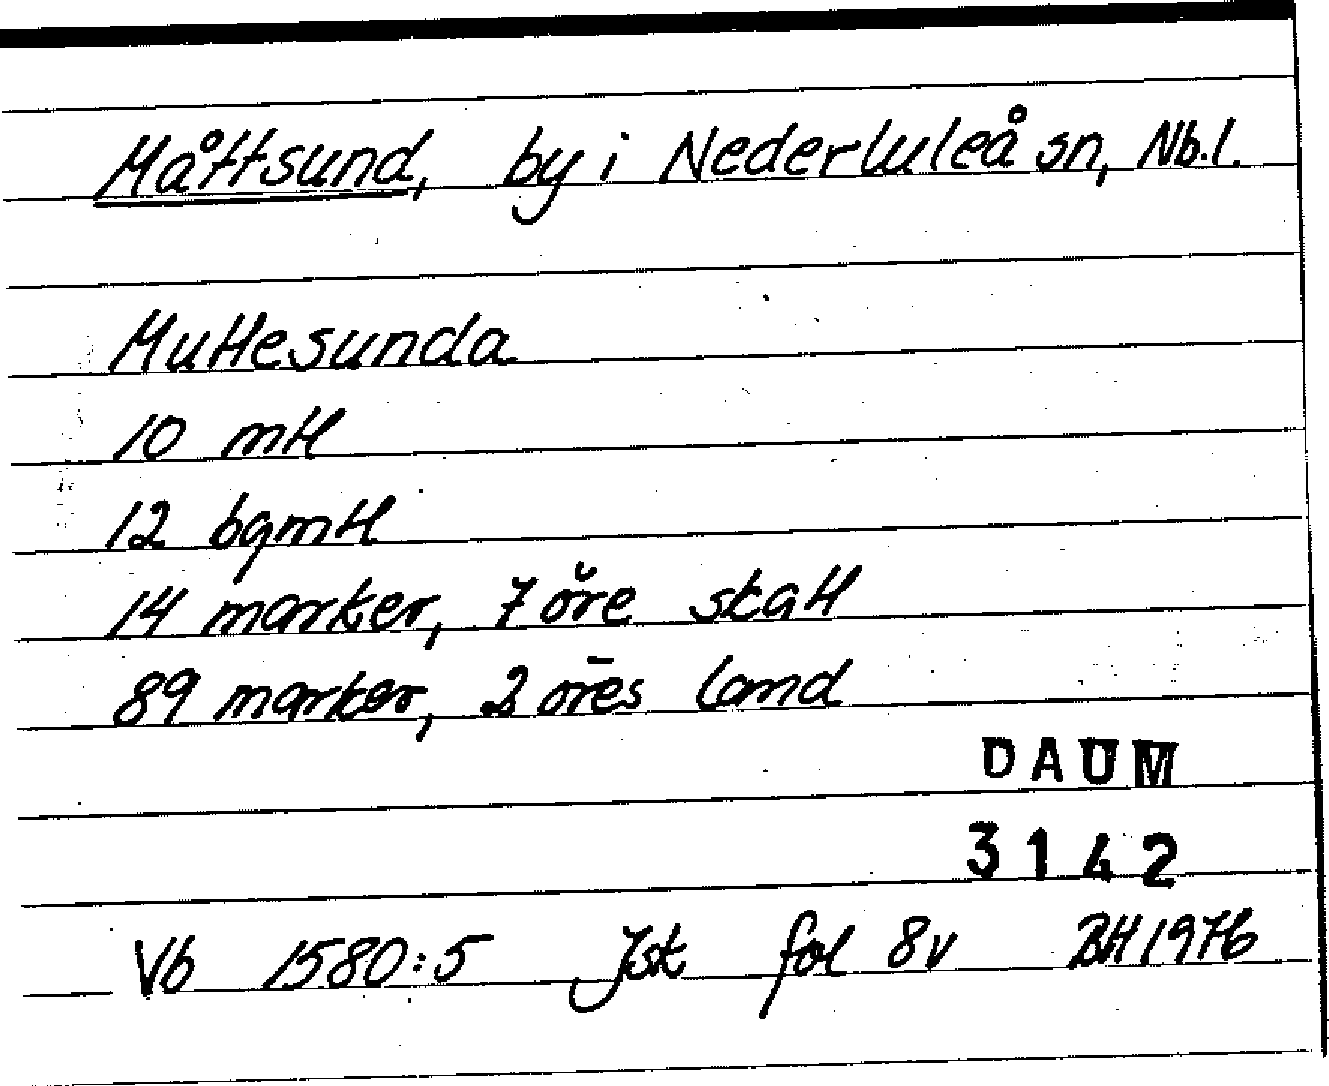 Måttsund, by i Nederluleå sn, Nb.l.
Muttesunda
10 mtl
12 bgmtl
14 marker, 7 öre skatt
89 marker, 2 öres land
DAUM
3142
Vb 1580:5 Jsk fol 8v BH 1976